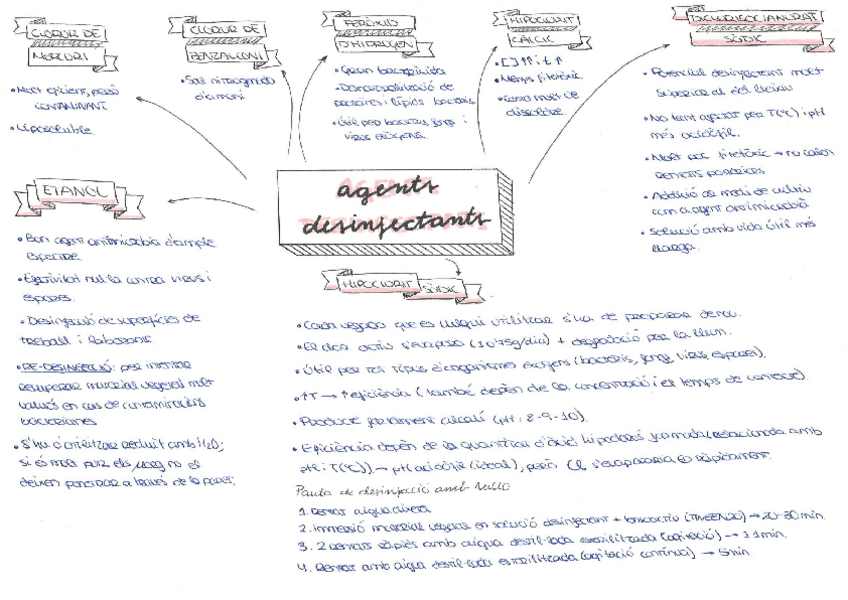 CLORUR DE
MERCURI
• Molt eficient, però
CONTAMINANT
• Liposoluble
CLORUR DE
BENZALCONI
• Sal nitrogenada
d'amoni
PERÒXID
D'HIDROGEN
• Gran bactericida
• Desnaturalització de
proteïnes i lípids bacteris.
• Útil per bacteris, fongs i
virus
HIPOCLORIT
CÀLCIC
• Menys fitotòxic
• Costa molt de
dissoldre.
DICLORISOCIANURAT
SÒDIC
• Potencial desinfectant molt
superior al del lleixiu
• No tant afectat per T(ºC) i pH
més acidòfil.
• Molt poc fitotòxic → no calen
rentats posteriors
• Addició de medi de cultiu
com a agent antimicrobià
• Solució amb vida útil més
llarga.
ETANOL
• Bon agent antimicrobià d'ample
espectre.
• Efectivitat nul·la contra virus i
espores.
• Desinfecció de superfícies de
treball i laboratori
• RE-DESINFECCIÓ: per intentar
recuperar material vegetal molt
valuós en cas de contaminacions
bacterianes
• S'ha d'utilitzar reduït amb H2O;
si és molt pur els no el
deixen penetrar a través de la paret.
agents
desinfectants
HIPOCLORIT SÒDIC
• Cada vegada que es vulgui utilitzar s'ha de preparar de nou.
• El clor actiu s'evapora (1'075g/dia) + degradació per la llum.
• Útil per tot tipus d'organismes exògens (bacteris, fongs, virus, espores).
• ↑T → ↑eficiència (també depèn de la concentració i el temps de contacte)
• Producte fortament alcalí (pH: 8-9-10).
• Eficiència depèn de la quantitat d'àcid hipoclorós formada (relacionada amb
pH i T(ºC)) → pH acidòfil (ideal), però Cl s'evaporaria ràpidament.
Pauta de desinfecció amb
1. Rentar aigua aixeta
2. Immersió material vegetal en solució desinfectant + tensoactiu (TWEEN20) → 20-30min
3. 2 rentats ràpids amb aigua destil·lada esterilitzada (agitació) → 1min.
4. Rentar amb aigua destil·lada esterilitzada (agitació contínua) → 5min